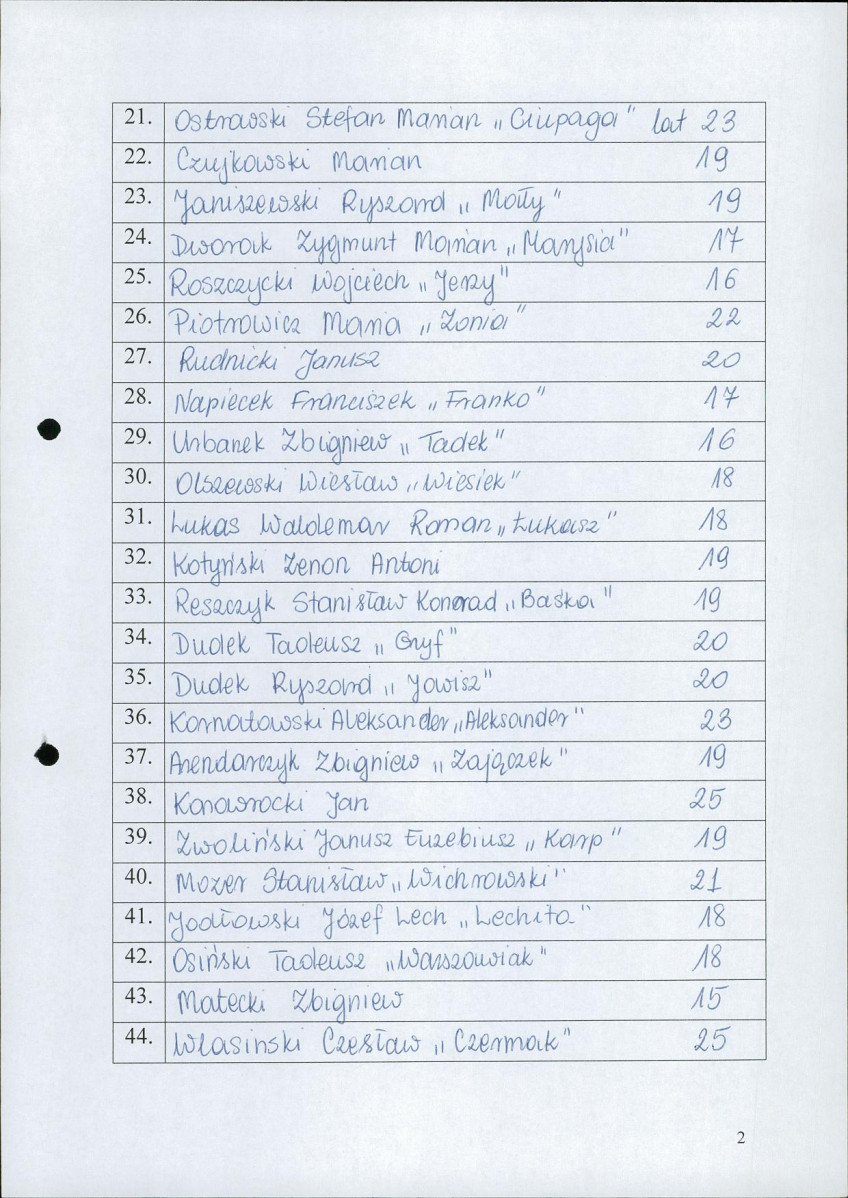 21. Ostrawski Stefan Marian „Ciupaga" lat 23
22. Czujkowski Marian 19
23. Janiszewski Ryszard „Mały" 19
24. Dworak Zygmunt Marian „Marysia" 17
25. Roszczycki Wojciech „Jerzy" 16
26. Piotrowicz Maria „Zonia" 22
27. Rudnicki Janusz 20
28. Napiecek Franciszek „Franko" 17
29. Urbanek Zbigniew „Tadek" 16
30. Olszewski Wiesław „Wiesiek" 18
31. Lukas Waldemar Roman „Łukasz" 18
32. Kotyński Zenon Antoni 19
33. Reszczyk Stanisław Konrad „Baśka" 19
34. Dudek Tadeusz „Gryf" 20
35. Dudek Ryszard „Jowisz" 20
36. Kornatowski Aleksander „Aleksander" 23
37. Arendarczyk Zbigniew „Zajączek" 19
38. Konawrocki Jan 25
39. Zwoliński Janusz Euzebiusz „Karp" 19
40. Mozer Stanisław „Wichrowski" 21
41. Jodłowski Józef Lech „Lechita" 18
42. Osiński Tadeusz „Warszawiak" 18
43. Małecki Zbigniew 15
44. Własinski Czesław „Czermak" 25
2